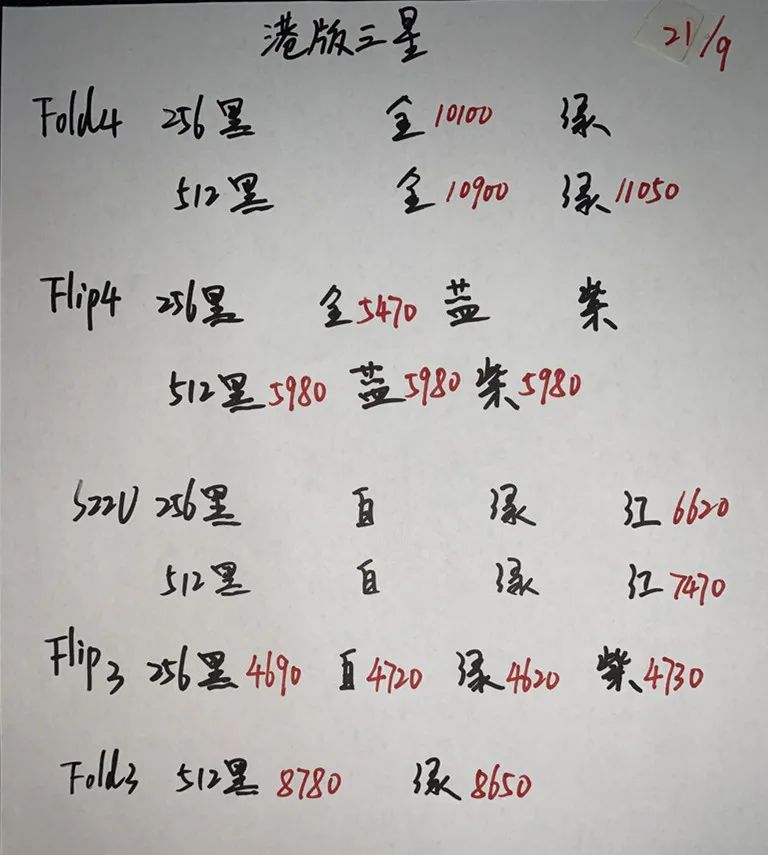 港版三星 21/9
Fold4 256黑 金10100 绿
512黑 金10900 绿11050
Flip4 256黑 金5470 蓝 紫
512黑5980 蓝5980 紫5980
S22U 256黑 白 绿 红6620
512黑 白 绿 红7470
Flip3 256黑4690 白4720 绿4620 紫4730
Fold3 512黑8780 绿8650